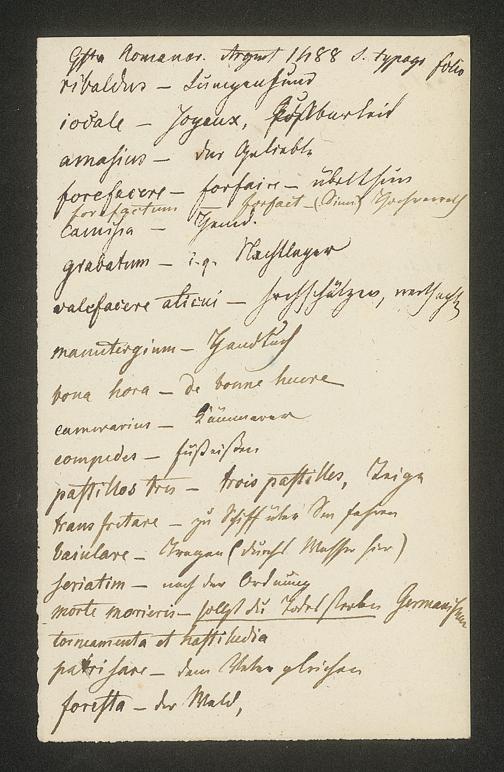 Gesta Romanor. Argent 1488 s. typogr folio
ribaldus – Lumpenhund
iocale – Joyeux, Kostbarkeit
amasius – der Geliebte
forefacere – forfaire – übelthun
forefactum – forfait – (Dimi)
camisia – Hemd.
grabatum – i.q. Nachtlager
valefacere alicui – hochschätzen, werthacht
manutergium – Handtuch
bona hora – de bonne heure
camerarius – Kämmerer
compedes – Fußeißen
pastillos tres – trois pastilles, Teige
transfretare – zu Schiff über See fahren
baiulare – Tragen (durchs Wasser hier)
seriatim – nach der Ordnung
morte morieris – sollst du Todes sterben Germanismen
tormenta et hastiludia
patrisare – dem Vater gleichen
foresta – der Wald,